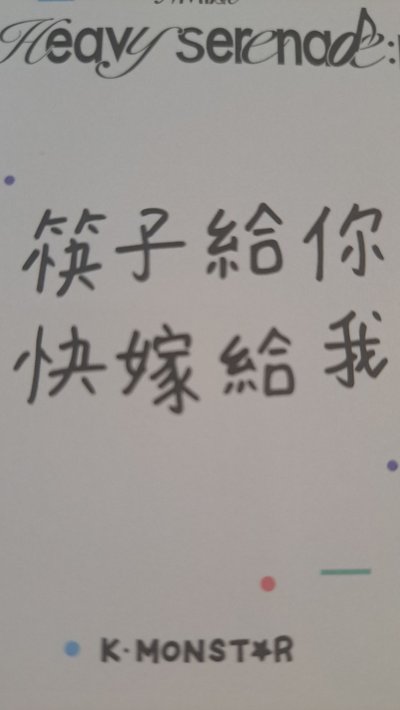 Heavy serenade:
筷子給你
快嫁給我
K·MONST★R